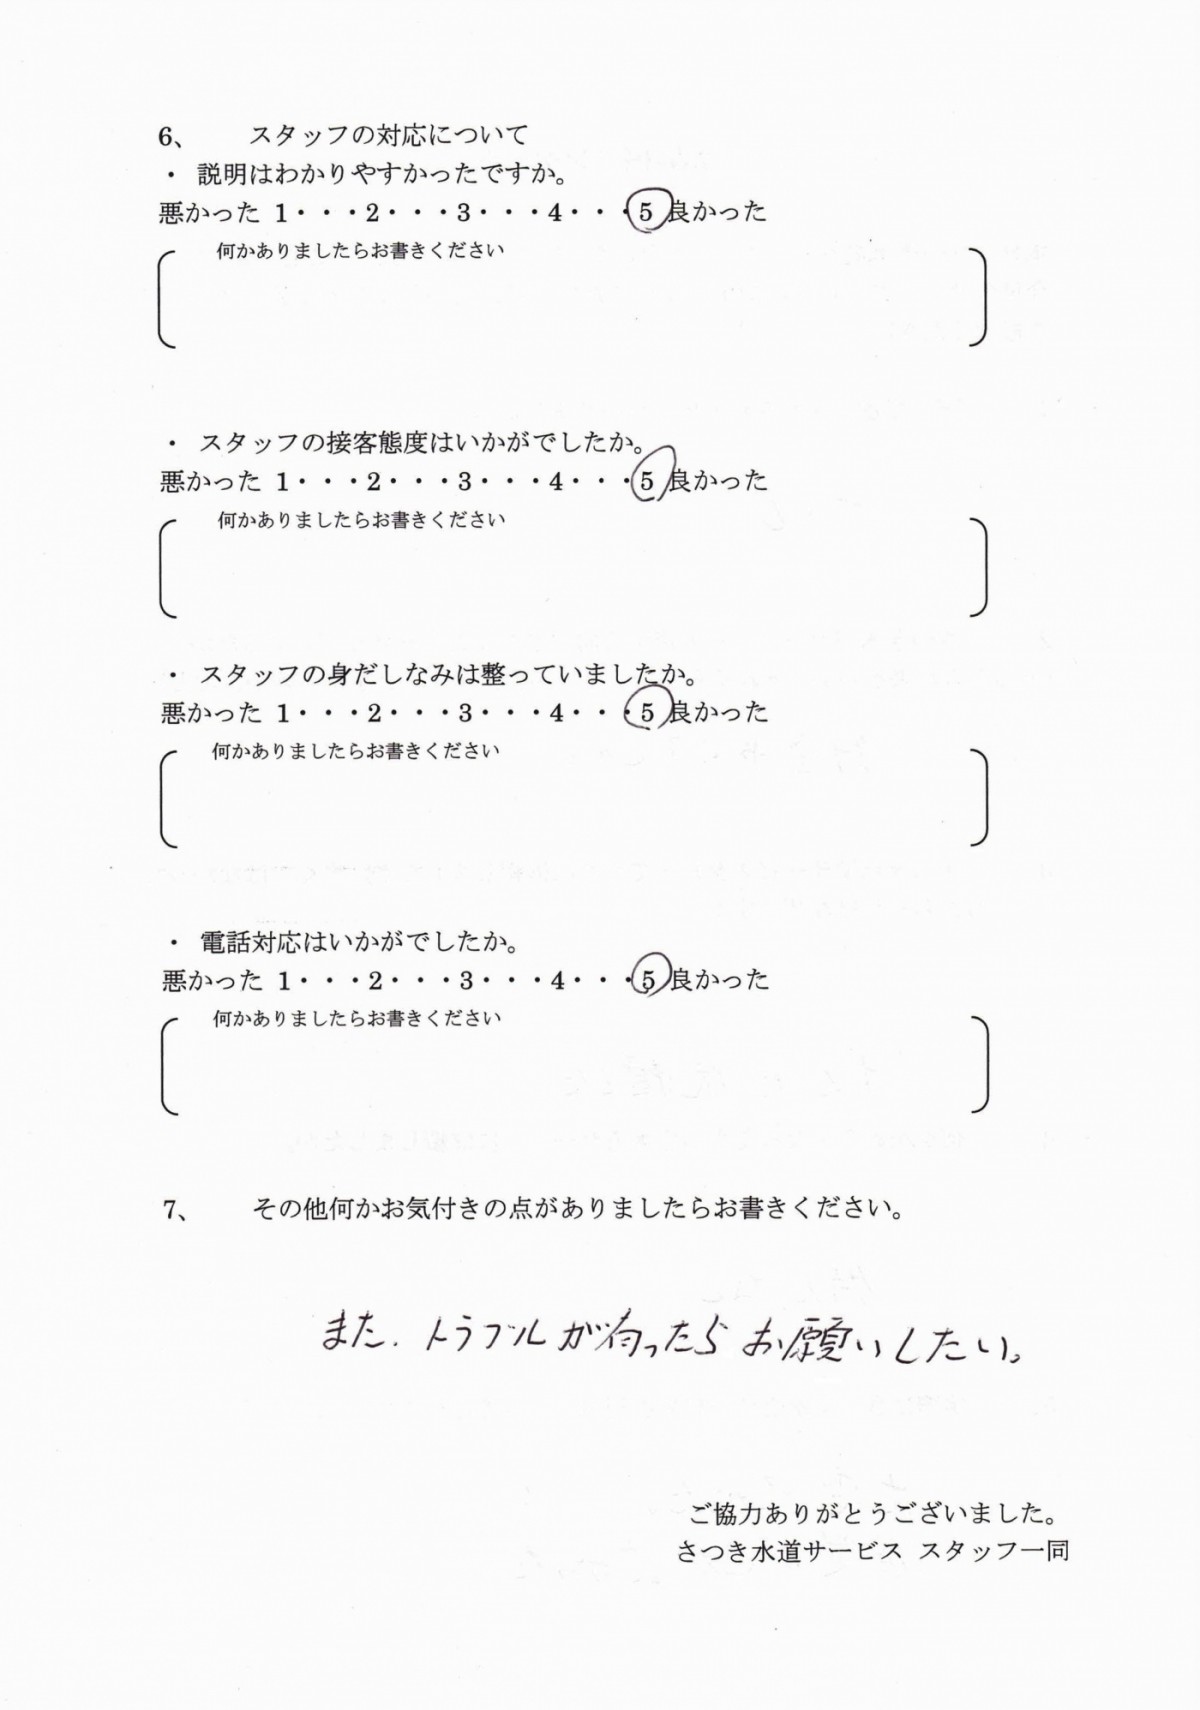 6、　　スタッフの対応について
・ 説明はわかりやすかったですか。
悪かった 1・・・2・・・3・・・4・・・5 良かった
何かありましたらお書きください
・ スタッフの接客態度はいかがでしたか。
悪かった 1・・・2・・・3・・・4・・・5 良かった
何かありましたらお書きください
・ スタッフの身だしなみは整っていましたか。
悪かった 1・・・2・・・3・・・4・・・5 良かった
何かありましたらお書きください
・ 電話対応はいかがでしたか。
悪かった 1・・・2・・・3・・・4・・・5 良かった
何かありましたらお書きください
7、　　その他何かお気付きの点がありましたらお書きください。
また、トラブルが有ったらお願いしたい。
ご協力ありがとうございました。
さつき水道サービス スタッフ一同